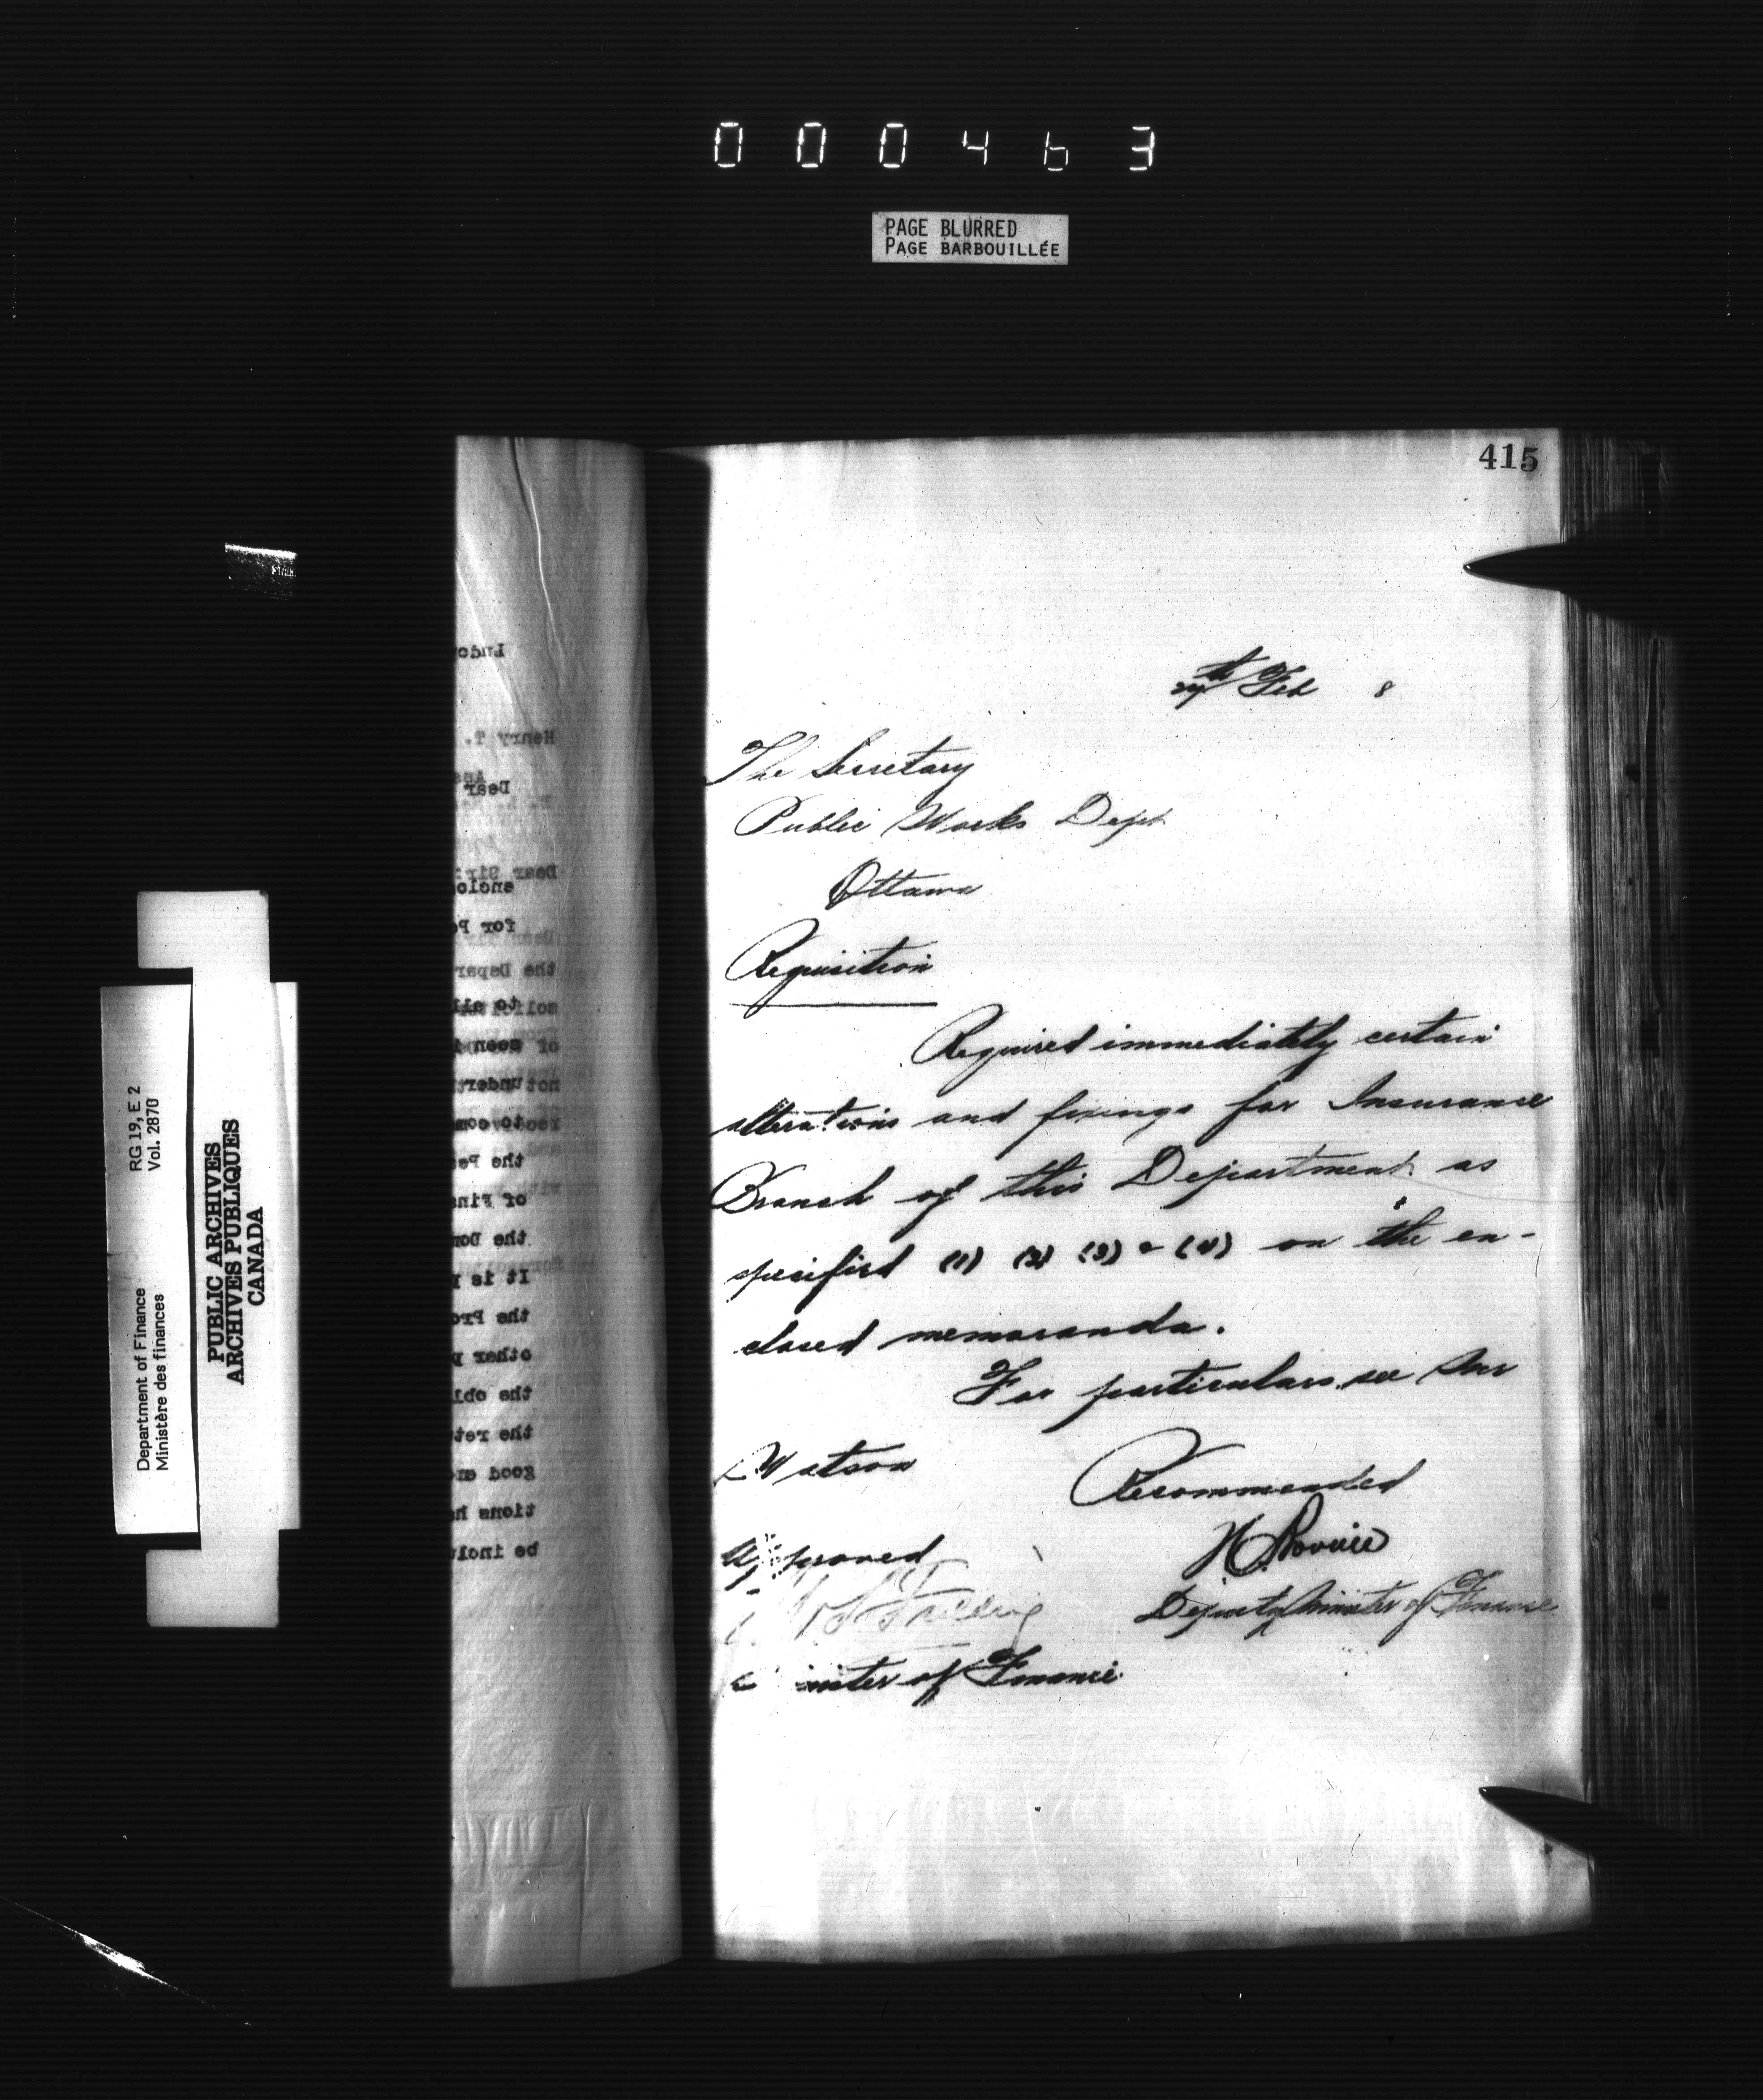 000463
PAGE BLURRED
PAGE BARBOUILLÉE
415
27th Feb 8
The Secretary
Public Works Dept
Ottawa
Requisition
Required immediately certain
alterations and fixings for Insurance
Branch of this Department as
specified (1) (2) (3) & (4) on the en-
closed memoranda.
For particulars see Mr
Watson
Recommended
Approved
Deputy Minister of Finance
W S Fielding
inister of Finance
Department of Finance
Ministère des finances
RG 19, E 2
Vol. 2870
PUBLIC ARCHIVES
ARCHIVES PUBLIQUES
CANADA
Henry T.
Dear
Dear Sir
enclo
for P
the Depar
to all
seen
not undert
to com
the Pe
of Fin
the Dom
It is
the Pro
other
the obl
the ret
good
tions h
be incl